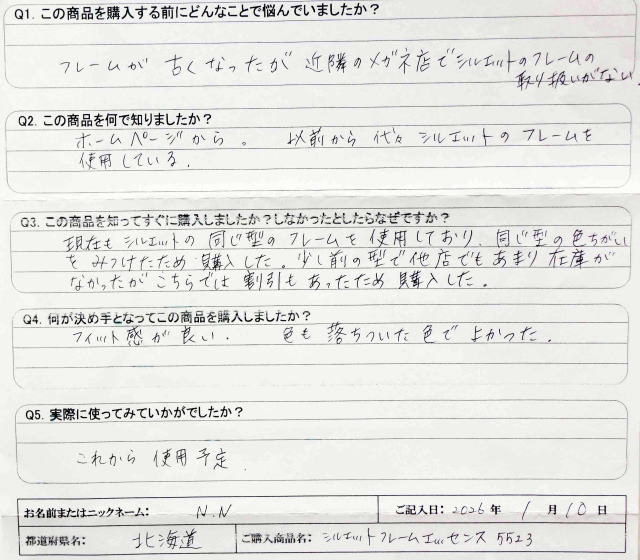 Q1. この商品を購入する前にどんなことで悩んでいましたか？
フレームが 古くなったが 近隣のメガネ店でシルエットのフレームの
取り扱いがない
Q2. この商品を何で知りましたか？
ホームページから。 以前から 代々 シルエットのフレームを
使用している.
Q3. この商品を知ってすぐに購入しましたか？しなかったとしたらなぜですか？
現在もシルエットの同じ型のフレームを使用しており、同じ型の色ちがい
をみつけたため 購入した。少し前の型で他店でもあまり在庫が
なかったがこちらでは割引もあったため購入した.
Q4. 何が決め手となってこの商品を購入しましたか？
フィット感が良い. 色も落ちついた色でよかった.
Q5. 実際に使ってみていかがでしたか？
これから 使用予定
お名前またはニックネーム： N.N ご記入日：2026年 1月10日
都道府県名： 北海道 ご購入商品名：シルエットフレームエッセンス 5523